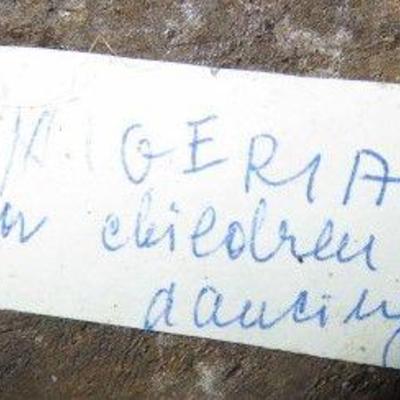 NIGERIA
children
dancing